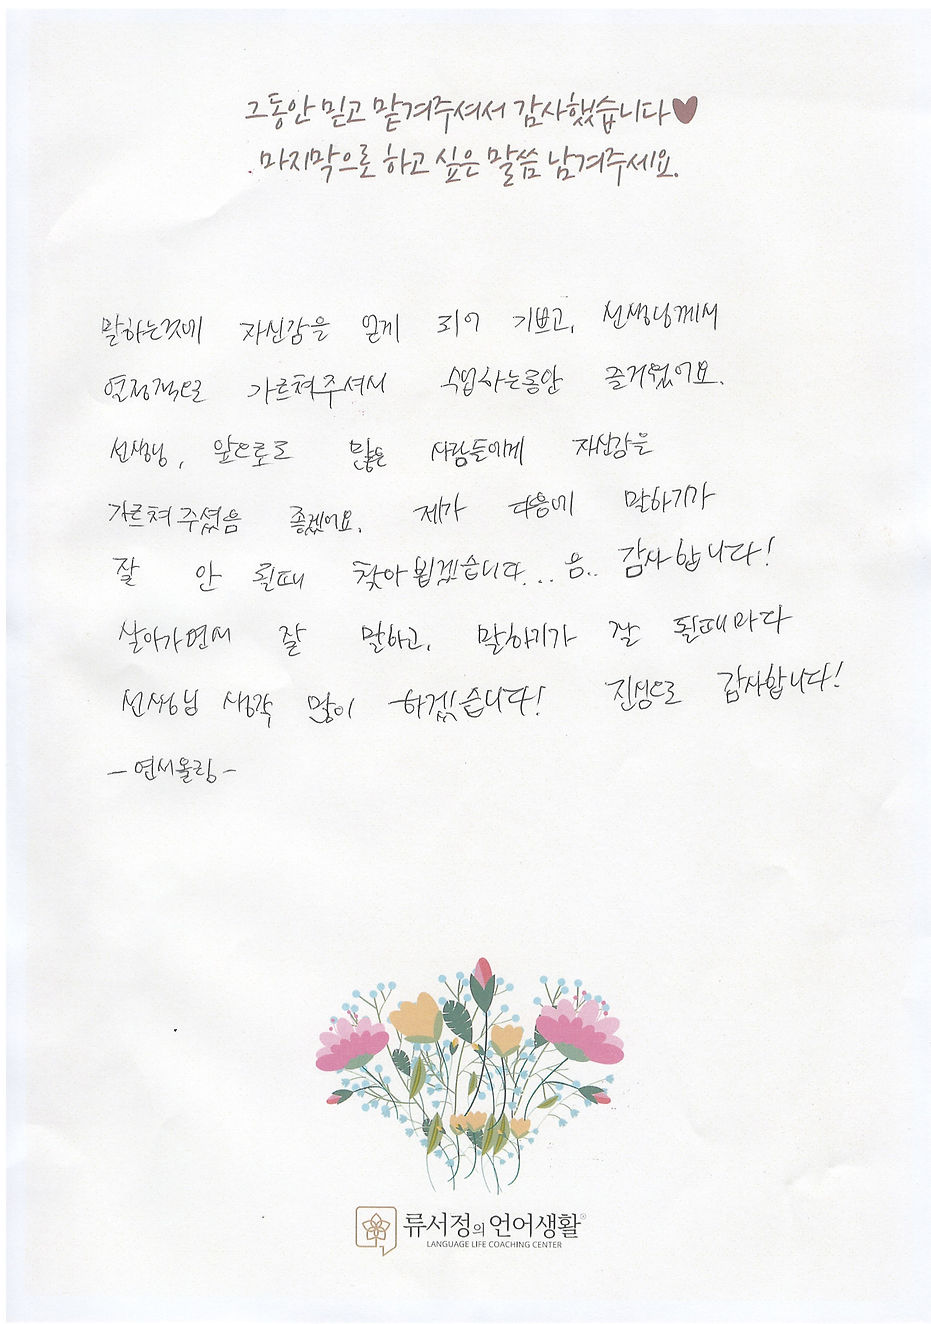 그동안 믿고 맡겨주셔서 감사했습니다♥
마지막으로 하고 싶은 말씀 남겨주세요.
말하는것에 자신감을 얻게 되어 기쁘고, 선생님께서
열정적으로 가르쳐주셔서 수업하는동안 즐거웠어요.
선생님, 앞으로도 많은 사람들에게 자신감을
가르쳐 주셨음 좋겠어요. 제가 다음에 말하기가
잘 안 될때 찾아뵙겠습니다... 음.. 감사합니다!
살아가면서 잘 말하고, 말하기가 잘 될때마다
선생님 생각 많이 하겠습니다! 진심으로 감사합니다!
-연서올림-
류서정의 언어생활®
LANGUAGE LIFE COACHING CENTER